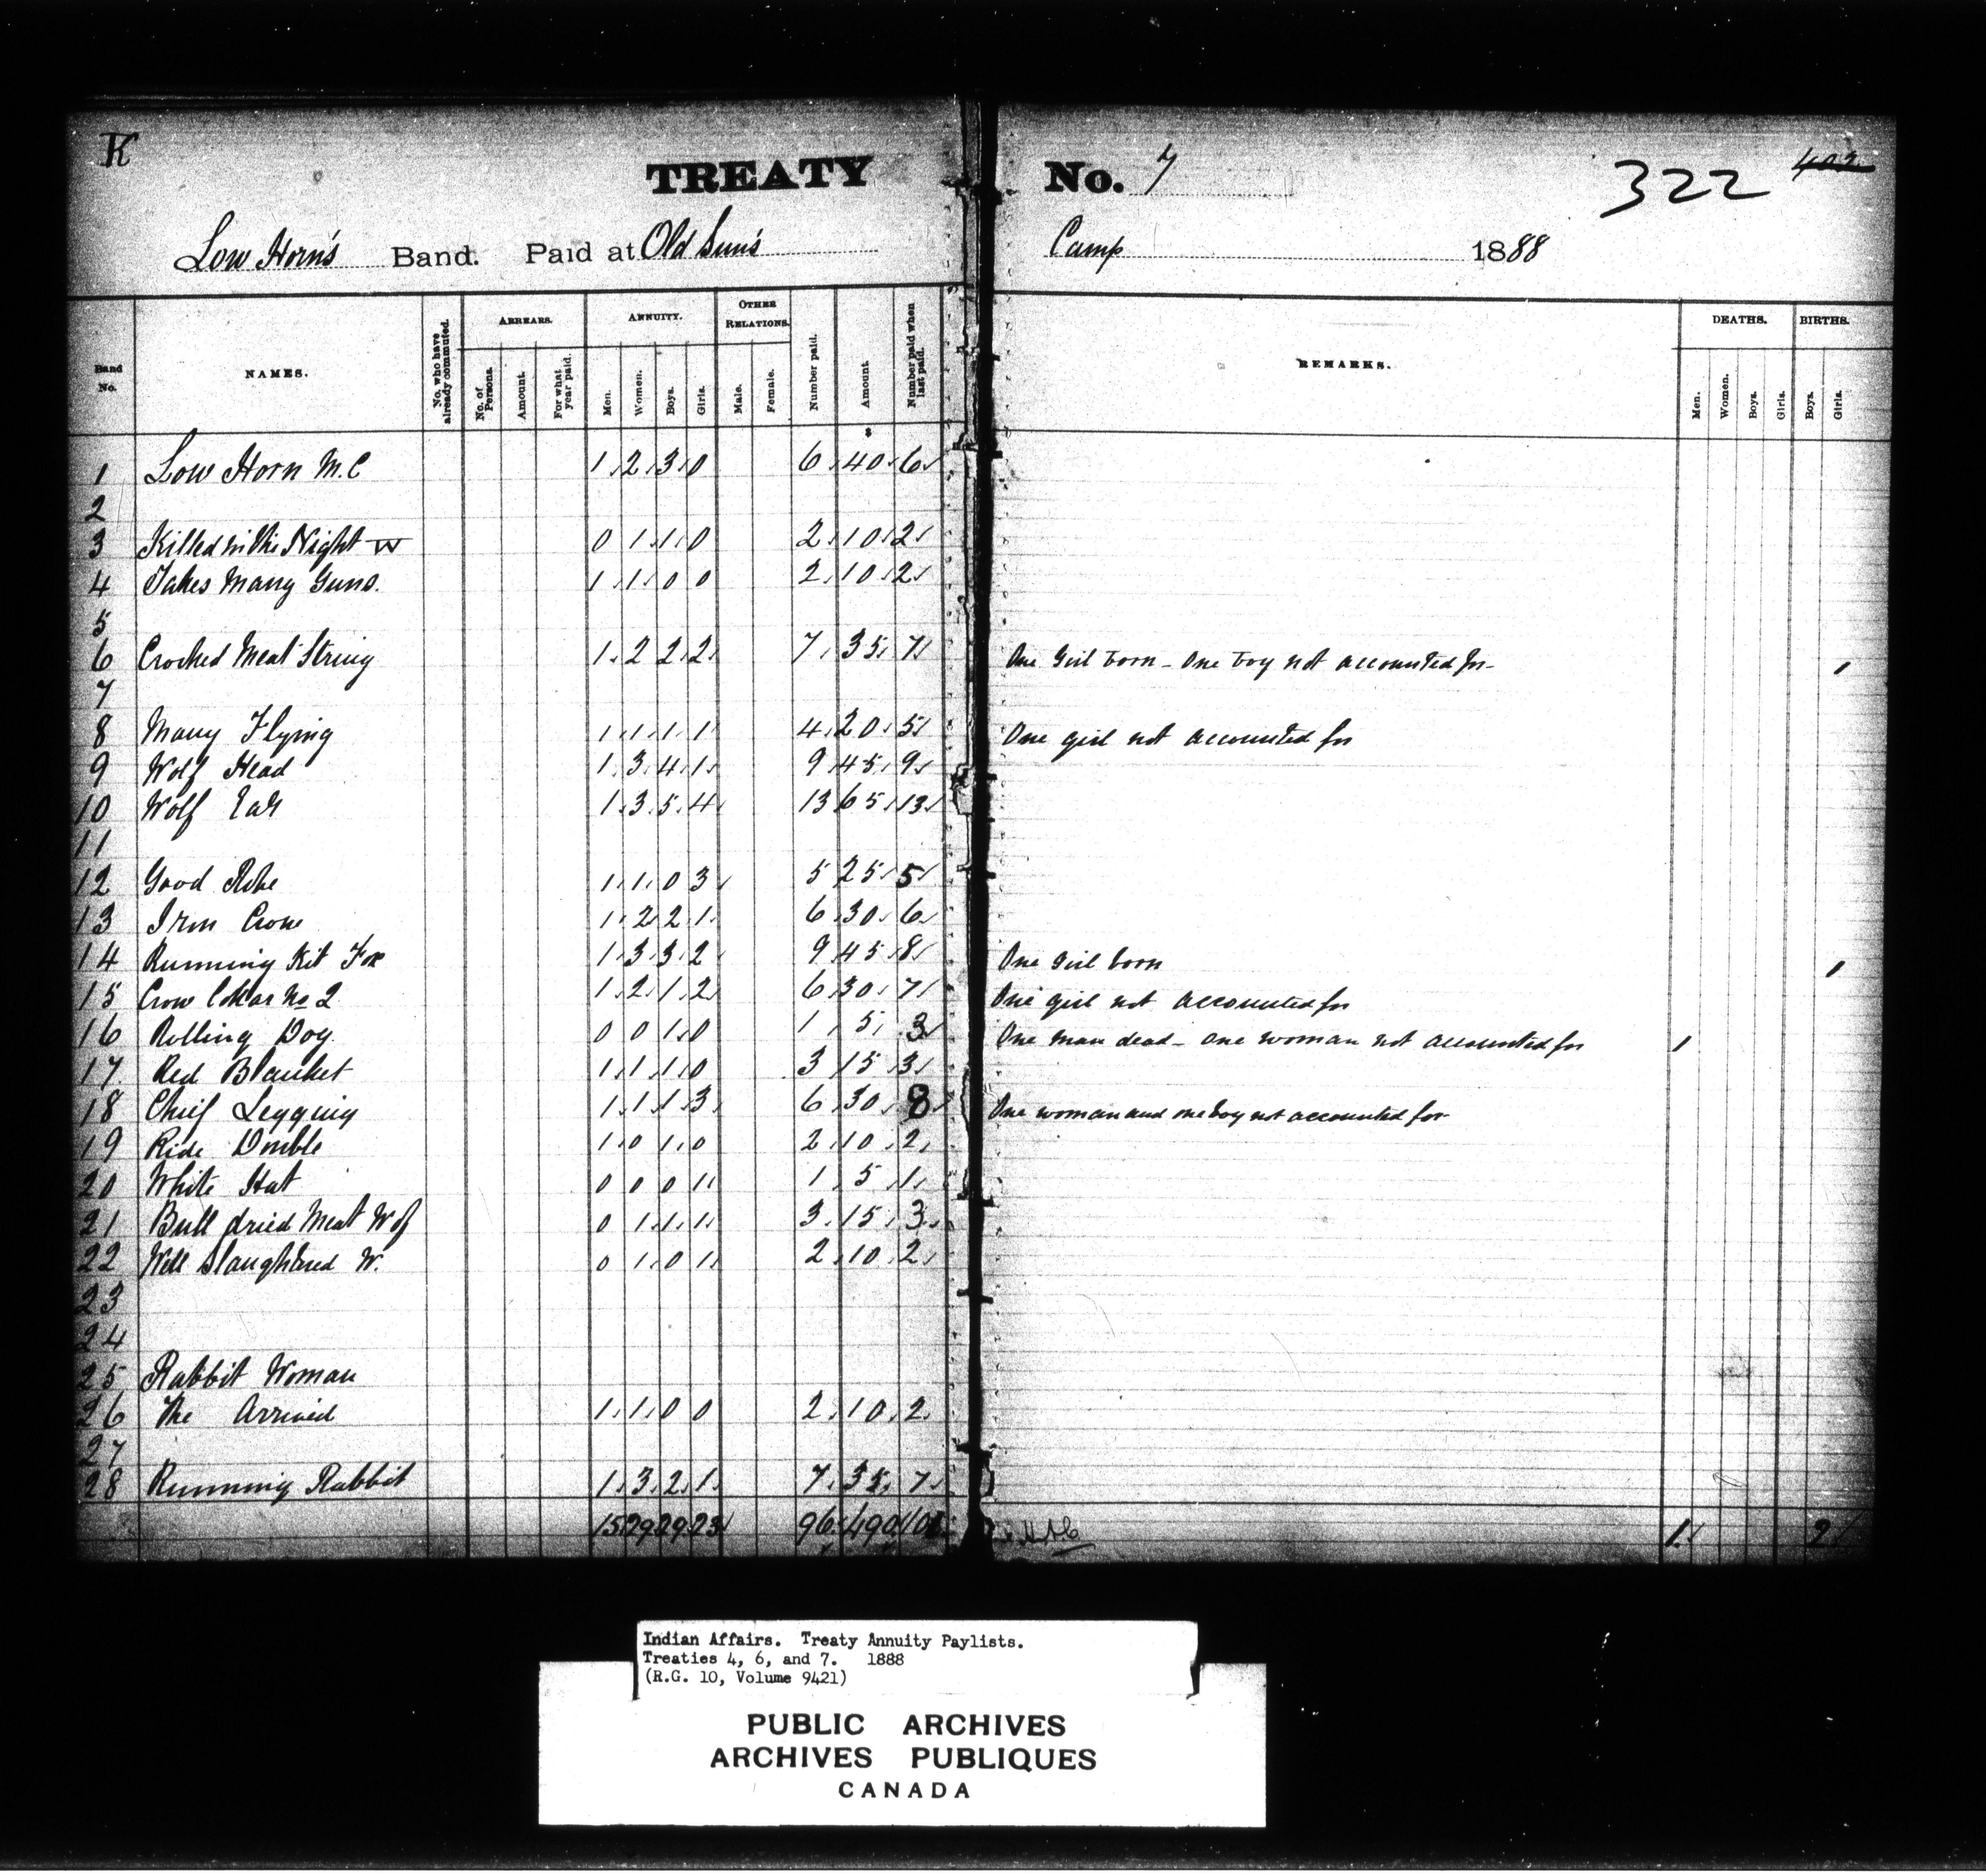 K
TREATY No. 7 322 402
Low Horn's Band. Paid at Old Sun's Camp 1888
Band No. NAMES. No. who have already commuted. ARREARS. No. of Persons. Amount. For what year paid. ANNUITY. Men. Women. Boys. Girls. OTHER RELATIONS. Male. Female. Number paid. Amount. Number paid when last paid. REMARKS. DEATHS. Men. Women. Boys. Girls. BIRTHS. Boys. Girls.
$
1 Low Horn M.C 1 2 3 0 6 40 6
2
3 Killed in the Night W 0 1 1 0 2 10 2
4 Takes Many Guns. 1 1 0 0 2 10 2
5
6 Crooked Meat String 1 2 2 2 7 35 7 One Girl born - One boy not accounted for - 1
7
8 Many Flying 1 1 1 1 4 20 5 One girl not accounted for
9 Wolf Head 1 3 4 1 9 45 9
10 Wolf Ear 1 3 5 4 13 65 13
11
12 Good Robe 1 1 0 3 5 25 5
13 Iron Crow 1 2 2 1 6 30 6
14 Running Kit Fox 1 3 3 2 9 45 8 One Girl born 1
15 Crow Collar No 2 1 2 1 2 6 30 7 One girl not accounted for
16 Rolling Dog 0 0 1 0 1 5 3 One man dead - one woman not accounted for 1
17 Red Blanket 1 1 1 0 3 15 3
18 Chief Legging 1 1 1 3 6 30 8 One woman and one boy not accounted for
19 Ride Double 1 0 1 0 2 10 2
20 White Hat 0 0 0 1 1 5 1
21 Bull dried Meat W of 0 1 1 1 3 15 3
22 Well Slaughtered W. 0 1 0 1 2 10 2
23
24
25 Rabbit Woman
26 The Arrived 1 1 0 0 2 10 2
27
28 Running Rabbit 1 3 2 1 7 35 7
15 29 29 23 96 490 101 1 2
Indian Affairs. Treaty Annuity Paylists.
Treaties 4, 6, and 7. 1888
(R.G. 10, Volume 9421)
PUBLIC ARCHIVES
ARCHIVES PUBLIQUES
CANADA